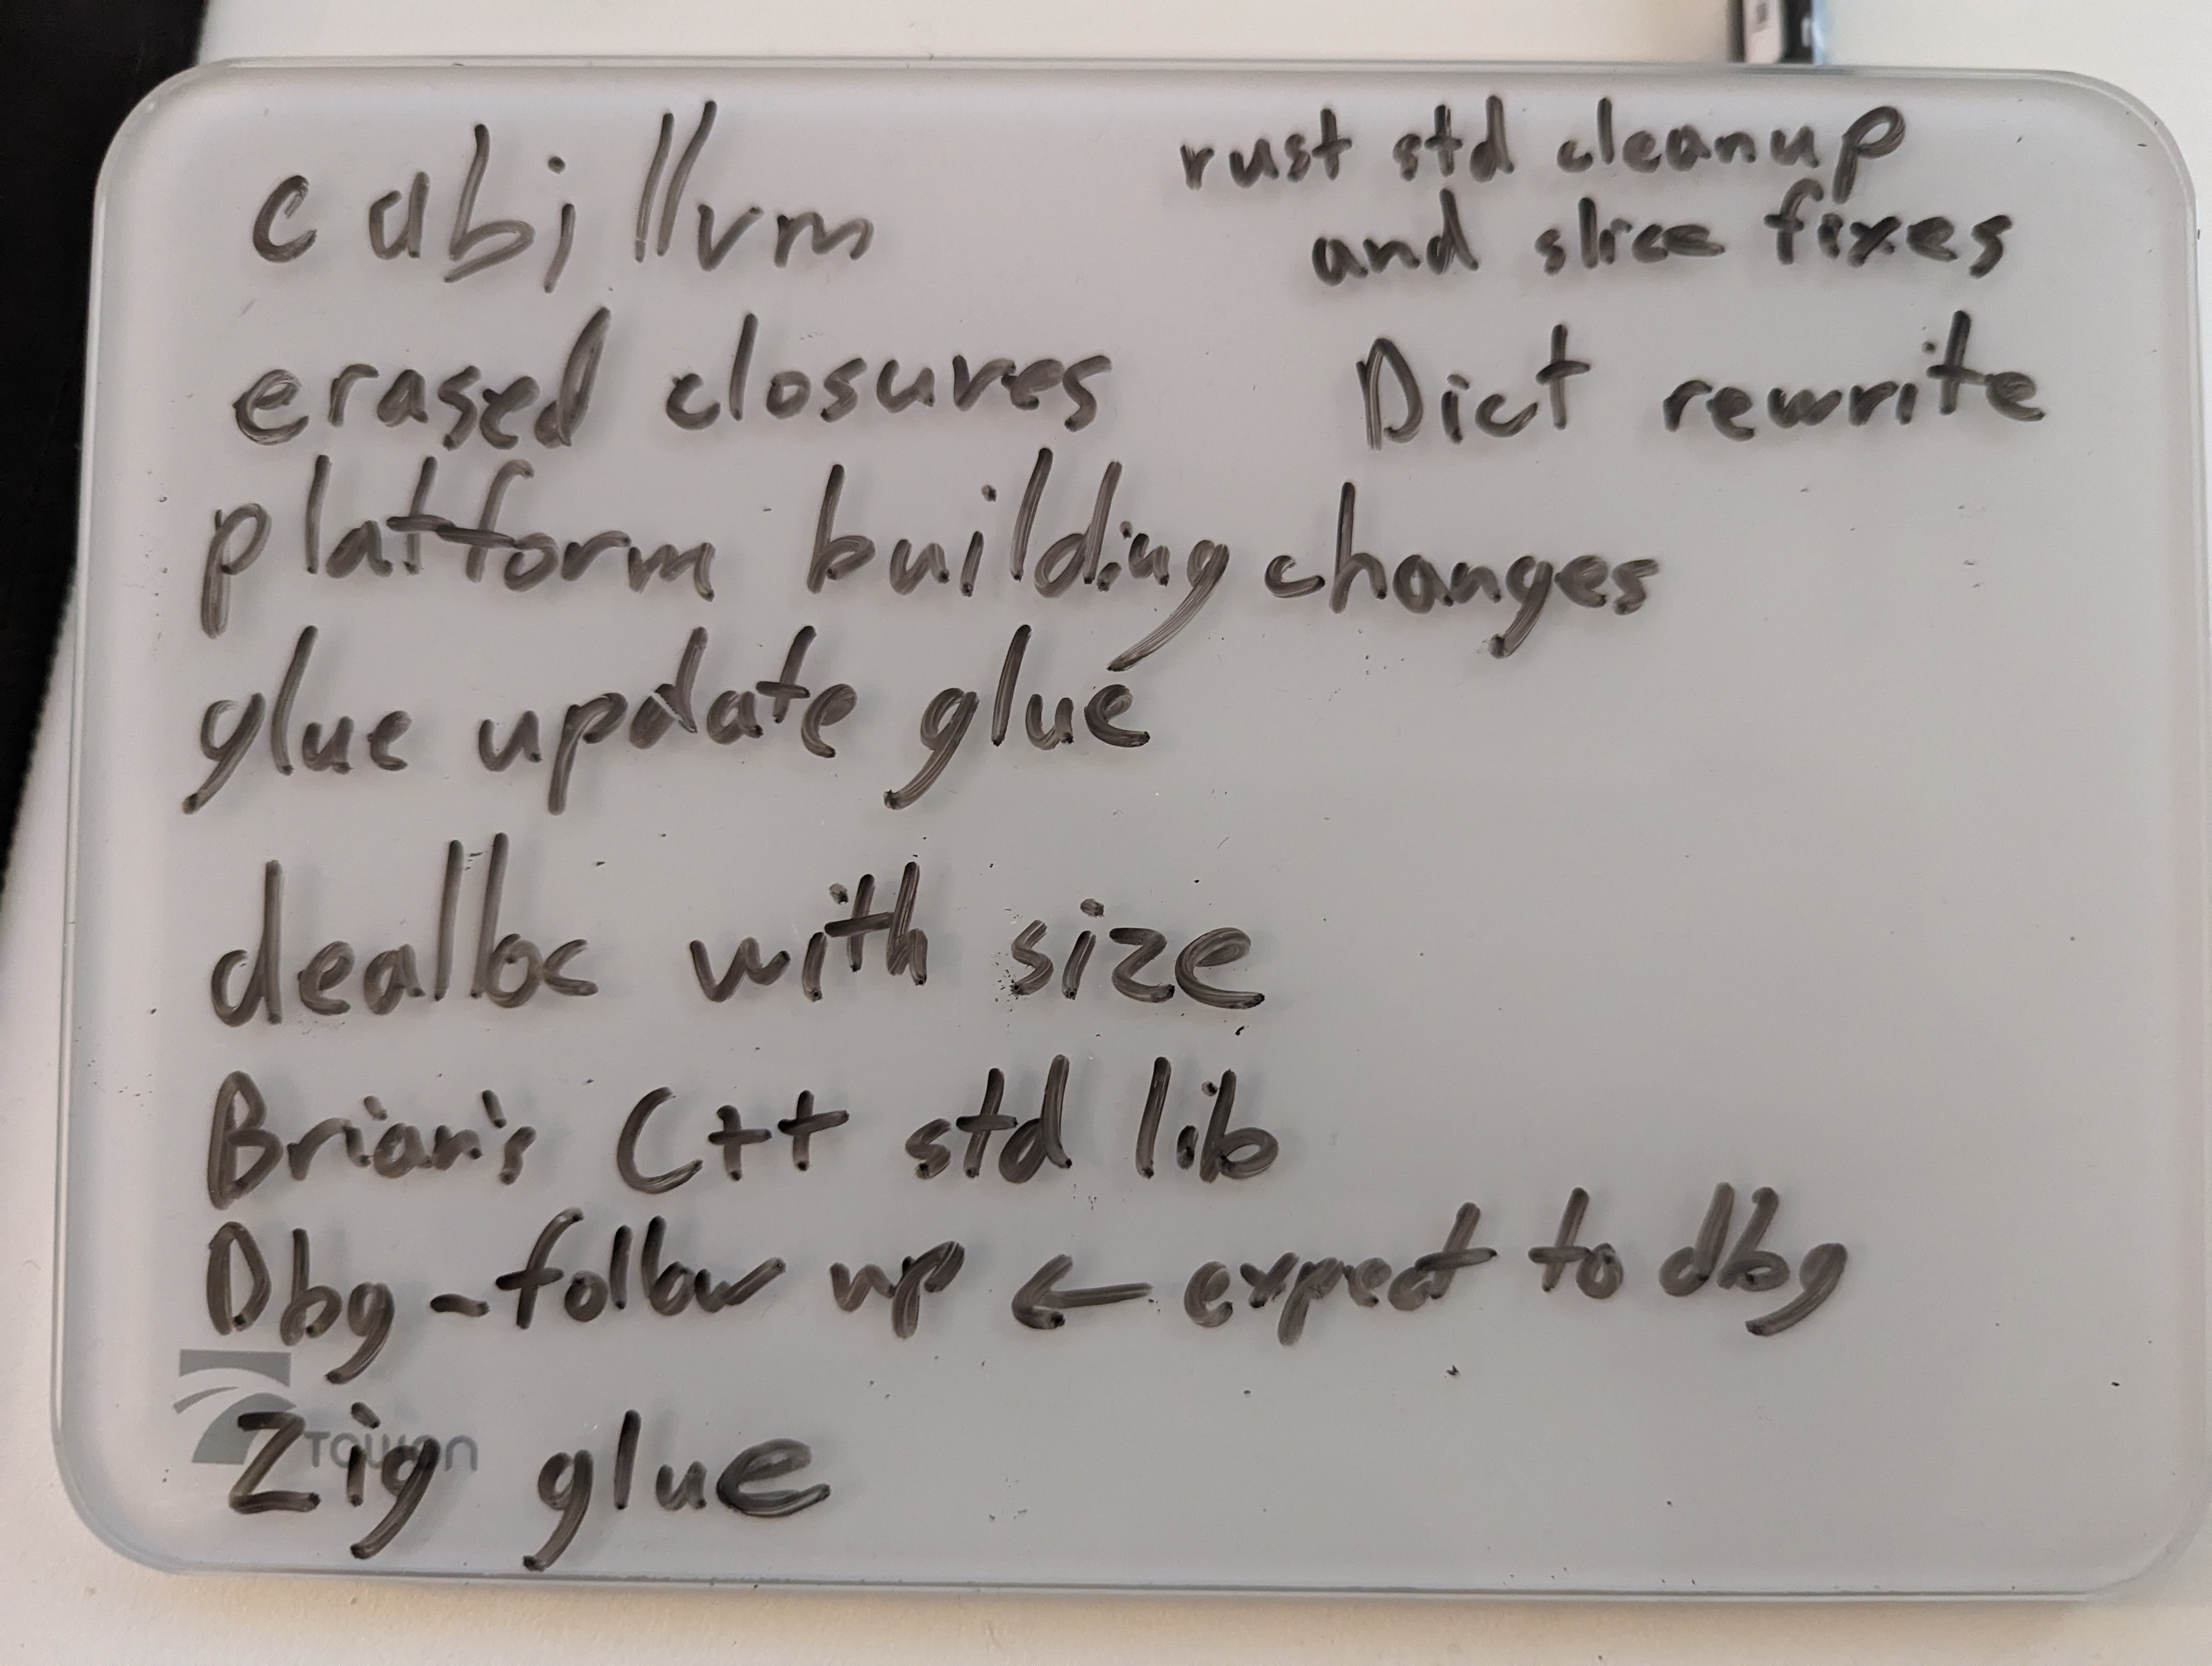 c abi llvm
erased closures
platform building changes
glue update glue
dealloc with size
Brian's C++ std lib
Dbg - follow up ← expect to dbg
Zig glue
rust std cleanup
and slice fixes
Dict rewrite
Towon